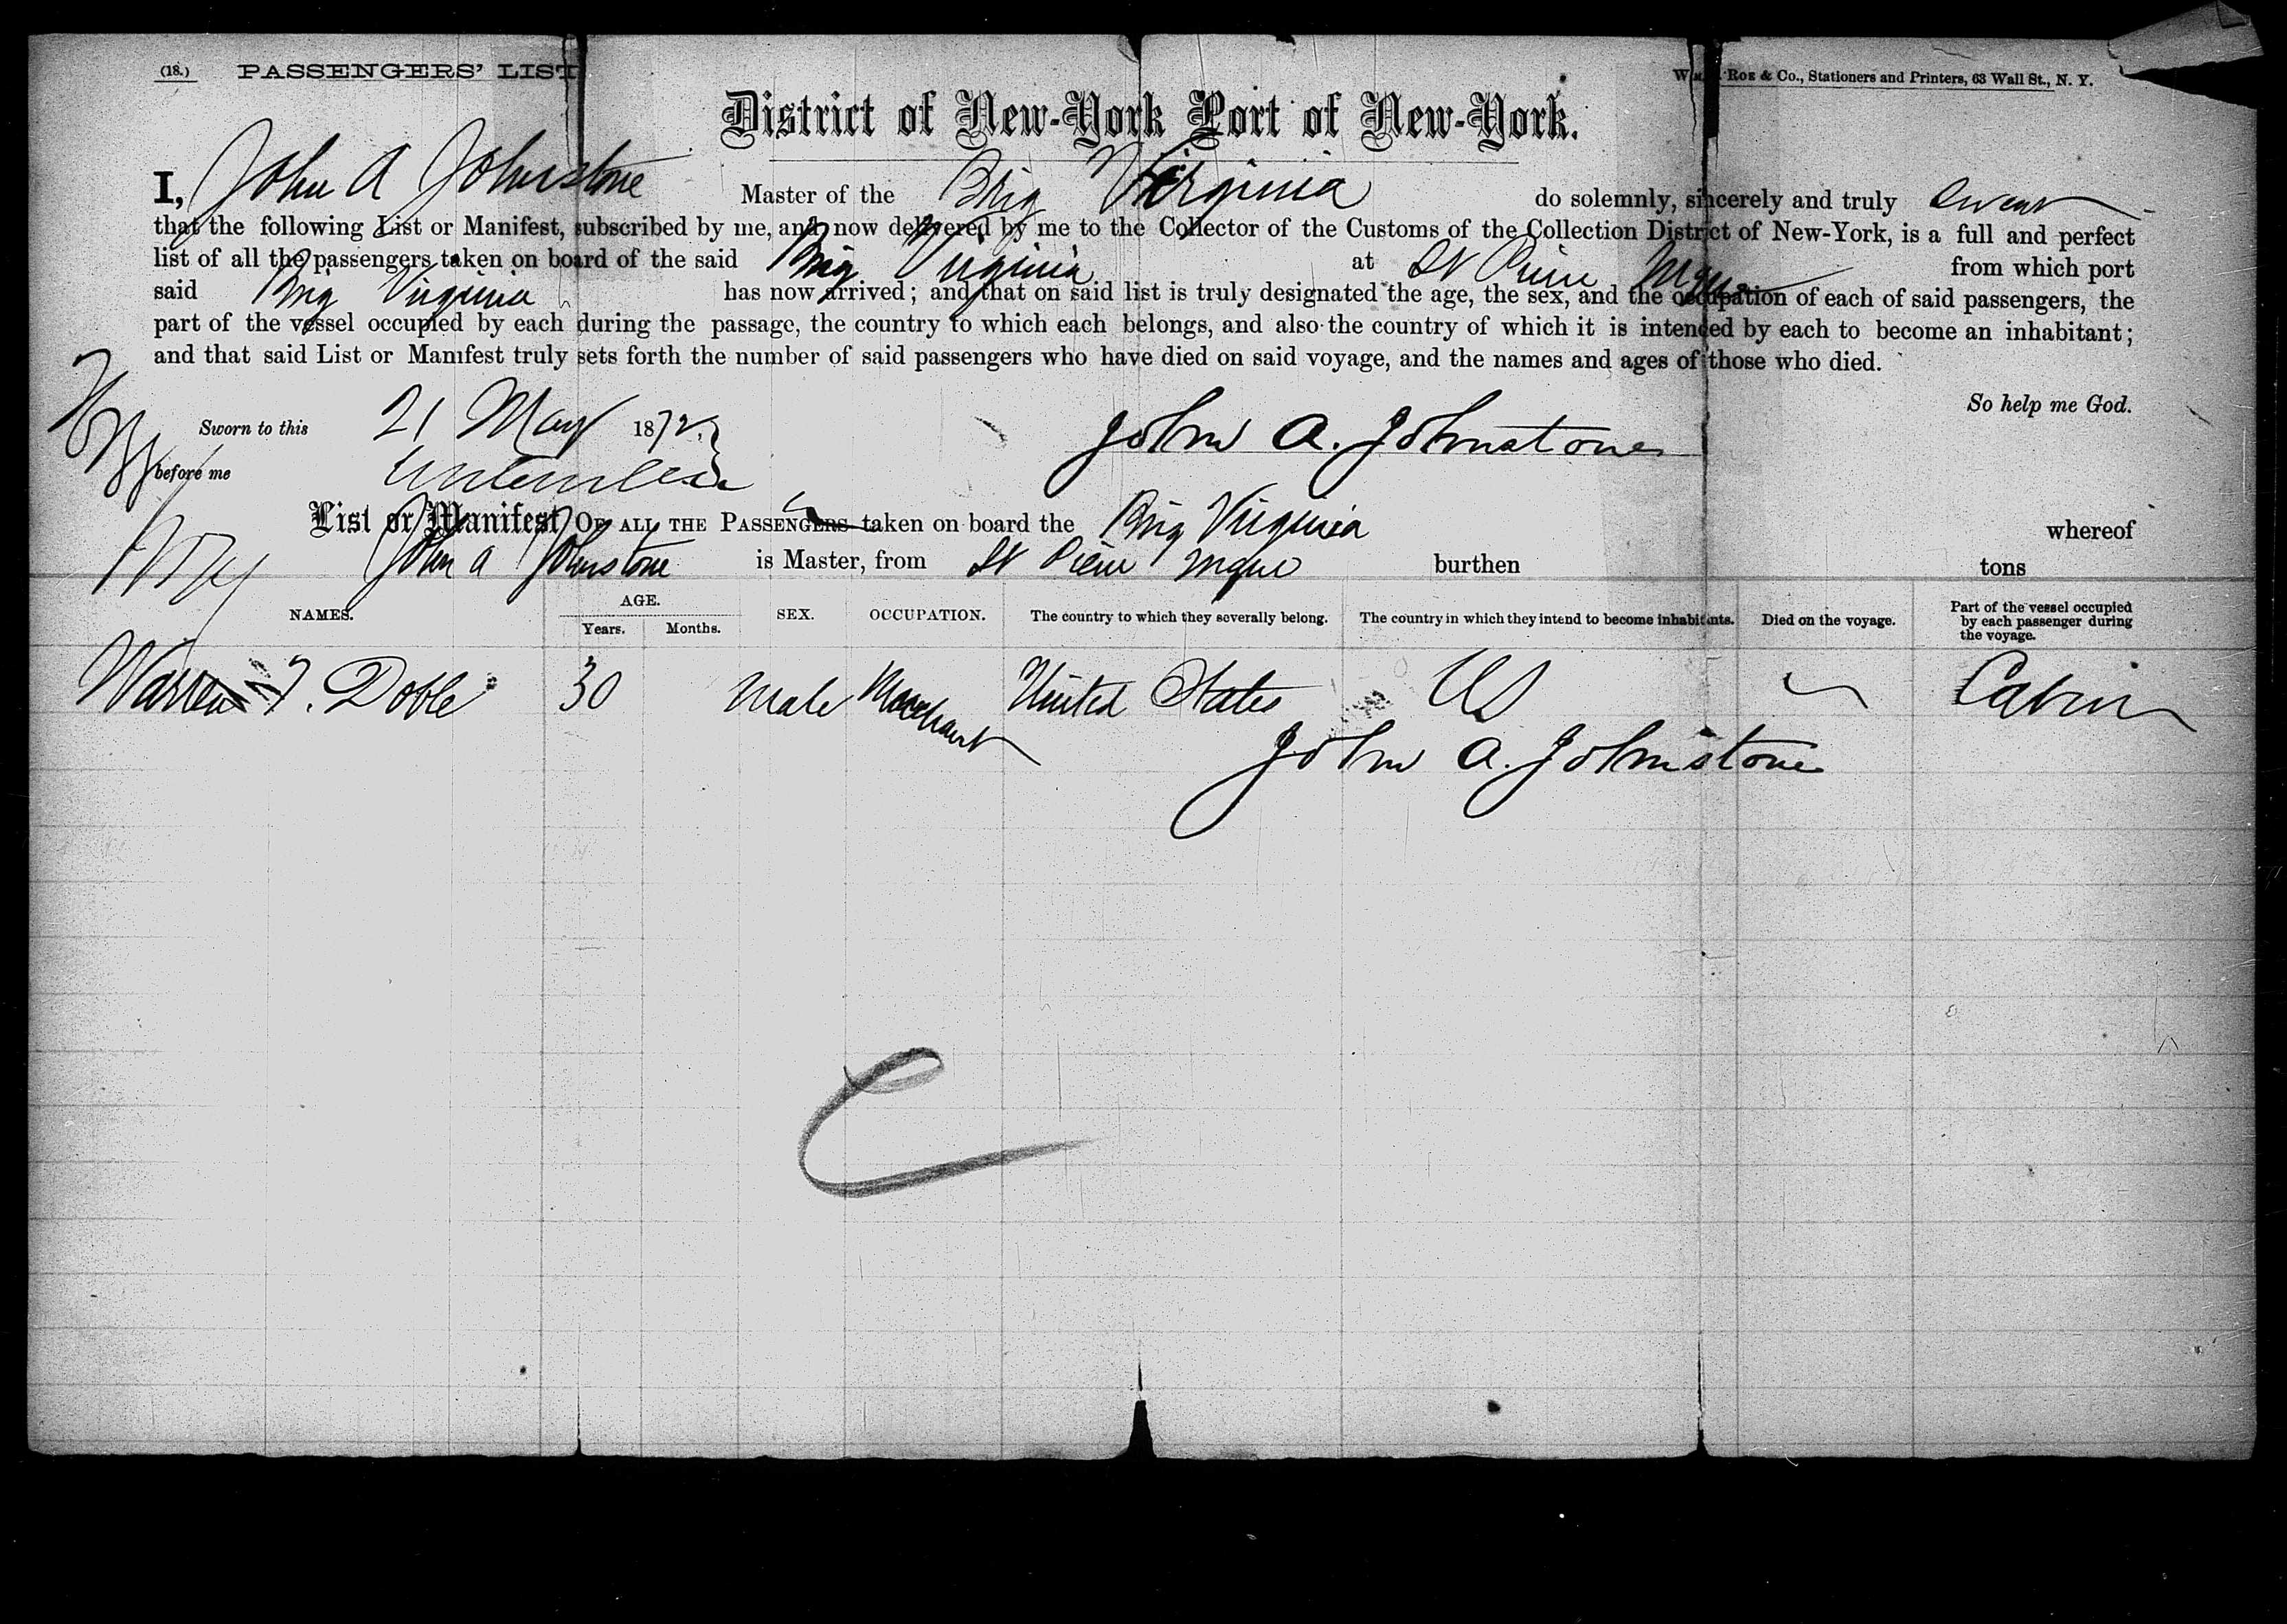 (18.) PASSENGERS' LIST
Roe & Co., Stationers and Printers, 63 Wall St., N. Y.
District of New-York Port of New-York.
I, John A Johnstone Master of the Brig Virginia do solemnly, sincerely and truly swear
that the following List or Manifest, subscribed by me, and now delivered by me to the Collector of the Customs of the Collection District of New-York, is a full and perfect
list of all the passengers taken on board of the said Brig Virginia at St Pierre from which port
said Brig Virginia has now arrived; and that on said list is truly designated the age, the sex, and the occupation of each of said passengers, the
part of the vessel occupied by each during the passage, the country to which each belongs, and also the country of which it is intended by each to become an inhabitant;
and that said List or Manifest truly sets forth the number of said passengers who have died on said voyage, and the names and ages of those who died.
So help me God.
Sworn to this 21 May 1872 John A. Johnstone
before me
List or Manifest OF ALL THE PASSENGERS taken on board the Brig Virginia whereof
John A Johnstone is Master, from St Pierre Mque burthen tons
NAMES. AGE. Years. Months. SEX. OCCUPATION. The country to which they severally belong. The country in which they intend to become inhabitants. Died on the voyage. Part of the vessel occupied by each passenger during the voyage.
Warren F. Doble 30 Male Merchant United States US Cabin
John A. Johnstone